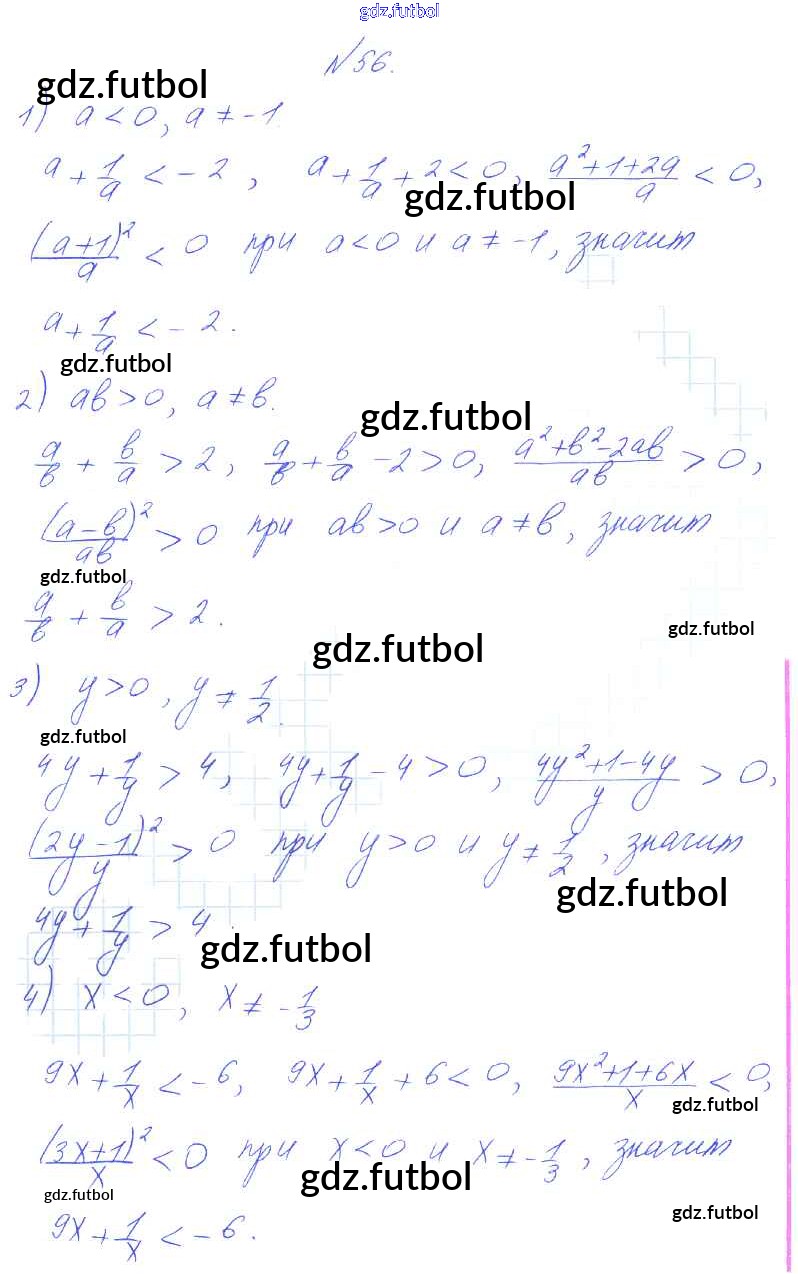 gdz.futbol
N56.
gdz.futbol
1) a < 0, a ≠ -1.
a + 1/a < -2, a + 1/a + 2 < 0, (a²+1+2a)/a < 0,
gdz.futbol
(a+1)²/a < 0 при a<0 и a ≠ -1, значит
a + 1/a < -2.
gdz.futbol
2) ab > 0, a ≠ b.
gdz.futbol
a/b + b/a > 2, a/b + b/a - 2 > 0, (a²+b²-2ab)/ab > 0,
(a-b)²/ab > 0 при ab>0 и a ≠ b, значит
gdz.futbol
a/b + b/a > 2.
gdz.futbol
gdz.futbol
3) y > 0, y ≠ 1/2.
gdz.futbol
4y + 1/y > 4, 4y + 1/y - 4 > 0, (4y²+1-4y)/y > 0,
(2y-1)²/y > 0 при y>0 и y ≠ 1/2, значит
gdz.futbol
4y + 1/y > 4.
gdz.futbol
4) x < 0, x ≠ -1/3
9x + 1/x < -6, 9x + 1/x + 6 < 0, (9x²+1+6x)/x < 0,
gdz.futbol
(3x+1)²/x < 0 при x<0 и x ≠ -1/3, значит
gdz.futbol
gdz.futbol
gdz.futbol
9x + 1/x < -6.